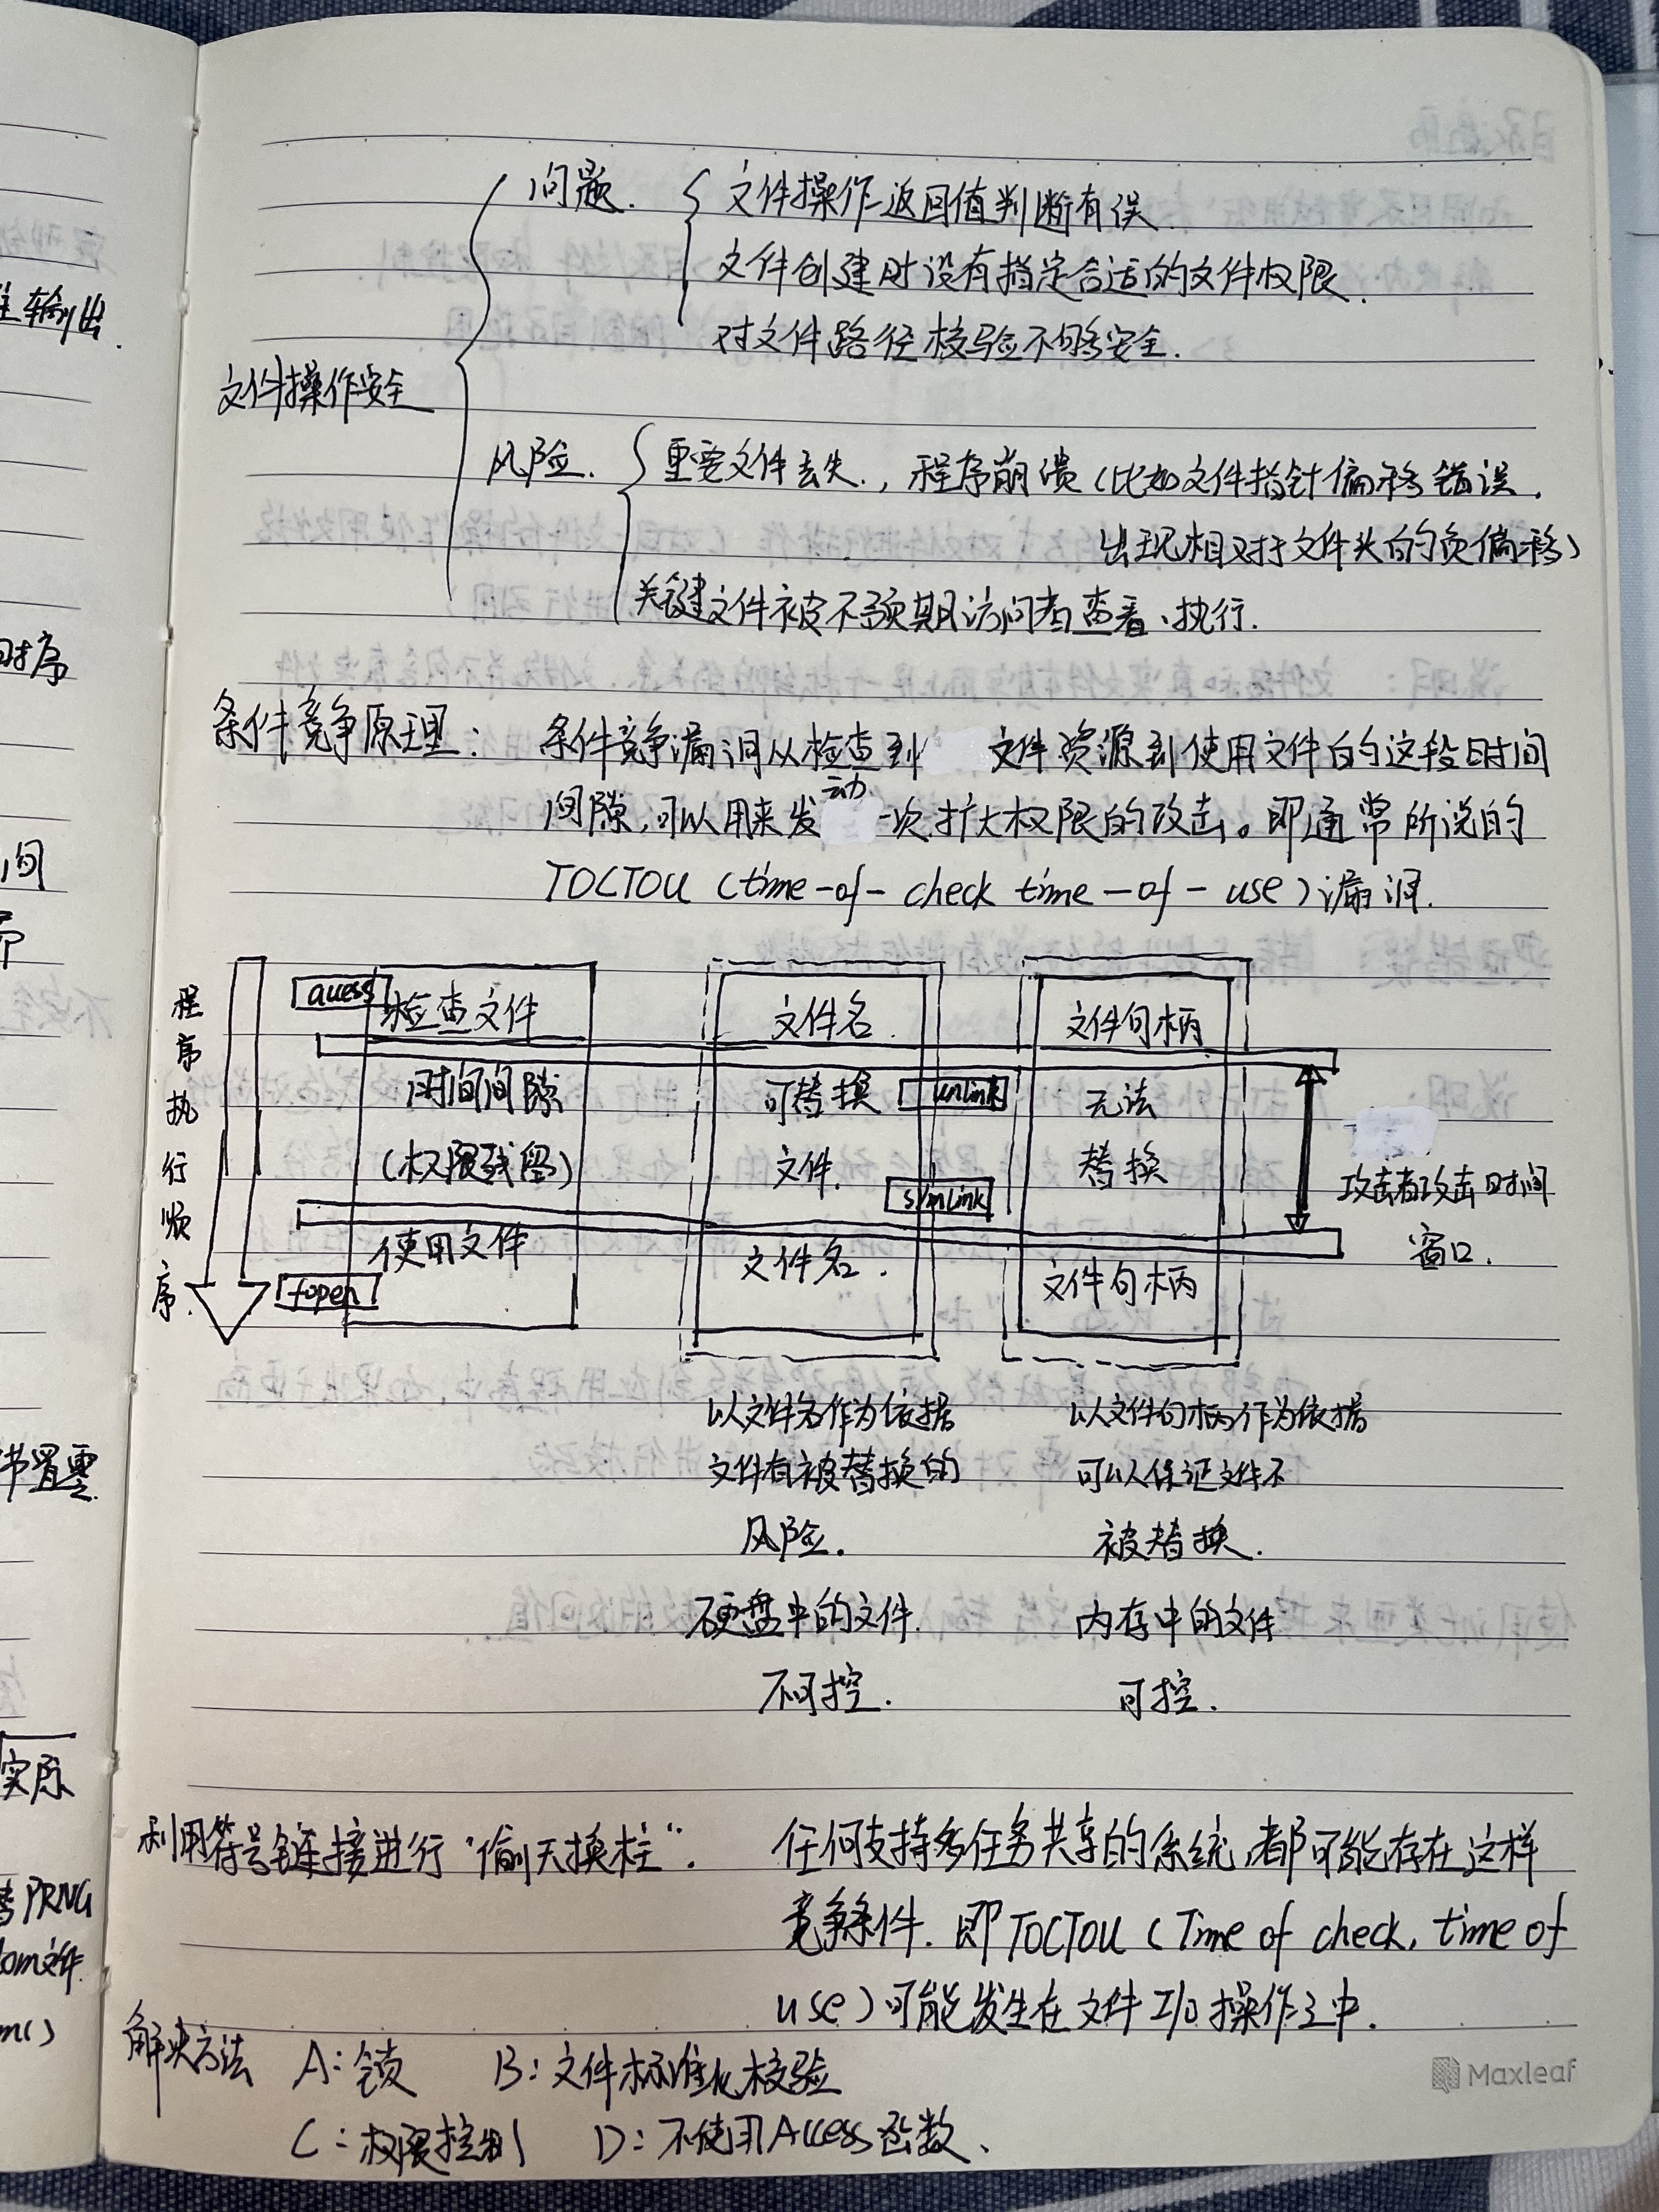 问题.
文件操作返回值判断有误.
文件创建时没有指定合适的文件权限.
对文件路径校验不够安全.
文件操作安全
风险.
重要文件丢失., 程序崩溃(比如文件指针偏移错误,
出现相对于文件头的负偏移)
关键文件被不预期访问者查看、执行.
条件竞争原理:
条件竞争漏洞从检查到 文件资源到使用文件的这段时间
间隙,可以用来发动一次扩大权限的攻击。即通常所说的
TOCTOU (time-of-check time-of-use)漏洞.
程序执行顺序.
access
检查文件
文件名.
文件句柄
时间间隙
(权限残留)
可替换
文件.
unlink
symlink
无法
替换
攻击者攻击时间
窗口.
使用文件
fopen
文件名.
文件句柄
以文件名作为依据
文件有被替换的
风险.
以文件句柄作为依据
可以保证文件不
被替换.
硬盘中的文件.
不可控.
内存中的文件
可控.
利用符号链接进行“偷天换柱”.
任何支持多任务共享的系统,都可能存在这样
竞争条件. 即TOCTOU (Time of check, time of
use)可能发生在文件I/O操作之中.
解决方法 A:锁 B:文件标准化校验
C:权限控制 D:不使用Access函数、
Maxleaf
输出.
时序
间
书置零
实际
PRNG
om文件
m()